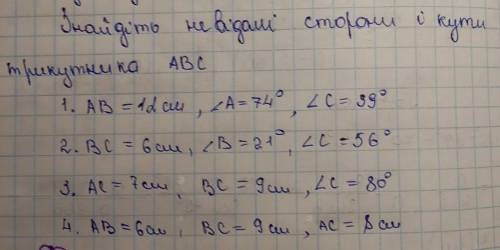 Знайдіть невідомі сторони і кути
трикутника ABC
1. AB = 12 см, ∠A = 74°, ∠C = 39°
2. BC = 6 см, ∠B = 21°, ∠C = 56°
3. AC = 7 см, BC = 9 см, ∠C = 80°
4. AB = 6 см, BC = 9 см, AC = 8 см